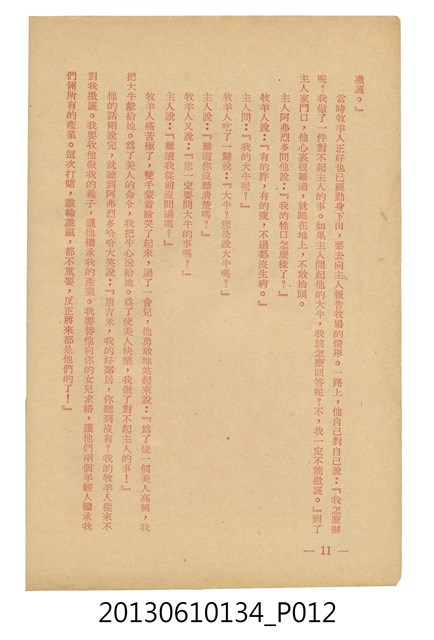 撒謊。』
當時牧羊人正好也已經動身下山，要去向主人報告牧場的情學。一路上，他自己對自己說：『我怎麼辦
呢？我做了一件對不起主人的事。如果主人問起他的大牛，我該怎麼回答呢？不，我一定不能撒謊。』到了
主人家門口，他心裏很難過，就跪在地上，不敢抬頭。
主人阿弗烈多問他說：『我的牲口怎麼樣了？』
牧羊人說：『有的胖，有的瘦，不過都沒生病。』
主人問：『我的大牛呢？』
牧羊人吃了一驚說：『大牛？您是說大牛嗎？』
主人說：『難道你沒聽清楚嗎？』
牧羊人又說：『您一定要問大牛的事嗎？』
主人說：『難道我從前沒問過嗎？』
牧羊人痛苦極了，雙手蒙着臉哭了起來，過了一會兒，他勇敢地站起來說：『爲了使一個美人高興，我
把大牛獻給她。爲了美人的命令，我把牛心送給她。爲了使美人快樂，我做了對不起主人的事！』
他的話剛說完，就聽到阿弗烈多哈哈大笑說：『唐吉米，我的好鄰居，你聽到沒有？我的牧羊人從來不
對我撒謊。我要收他做我的義子，讓他繼承我的產業。我要替他向你的女兒求婚，讓他們兩個年輕人繼承我
們倆所有的產業。這次打賭，誰輸誰贏，都不重要，反正將來都是他們的了！』
— 11 —
20130610134_P012